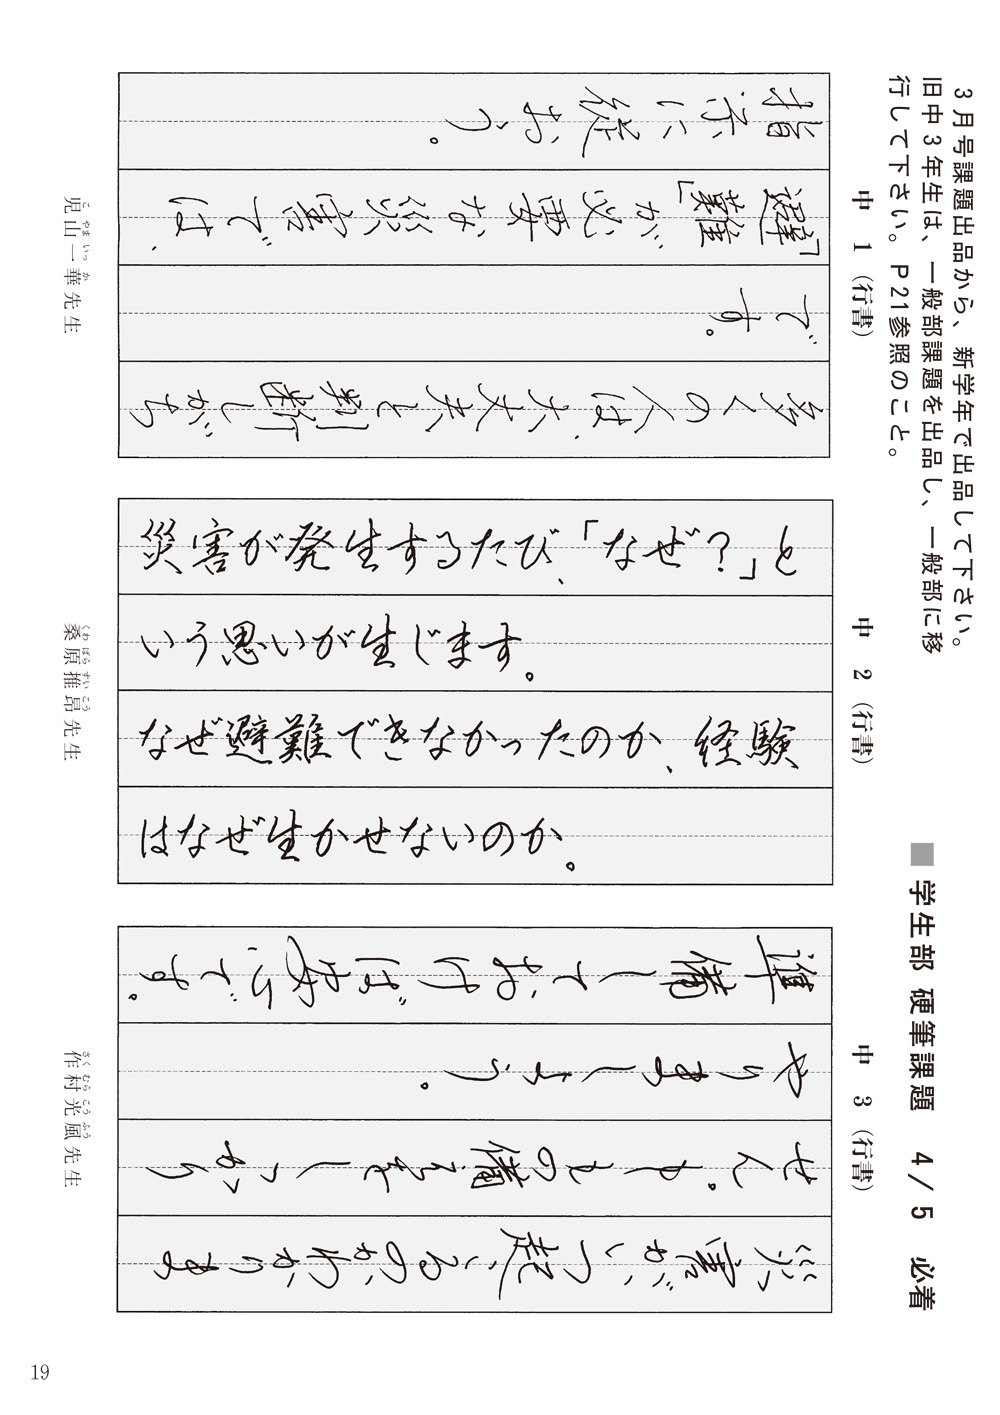 3月号課題出品から、新学年で出品して下さい。
旧中3年生は、一般部課題を出品し、一般部に移
行して下さい。P21参照のこと。
■学生部 硬筆課題 4/5 必着
中 1 (行書)
多くの人は、大丈夫と判断しがち
です。
「避難」が必要な災害では、
指示に従おう。
こやま いっか
児山一華先生
中 2 (行書)
災害が発生するたび、「なぜ?」と
いう思いが生じます。
なぜ避難できなかったのか、経験
はなぜ生かせないのか。
くわばら ずいこう
桑原推昂先生
中 3 (行書)
災害がいつ起こるのかわかりま
せん。もしもの備えをしっかり
やりましょう。
準備しておけば安心です。
さくむら こうふう
作村光風先生
19